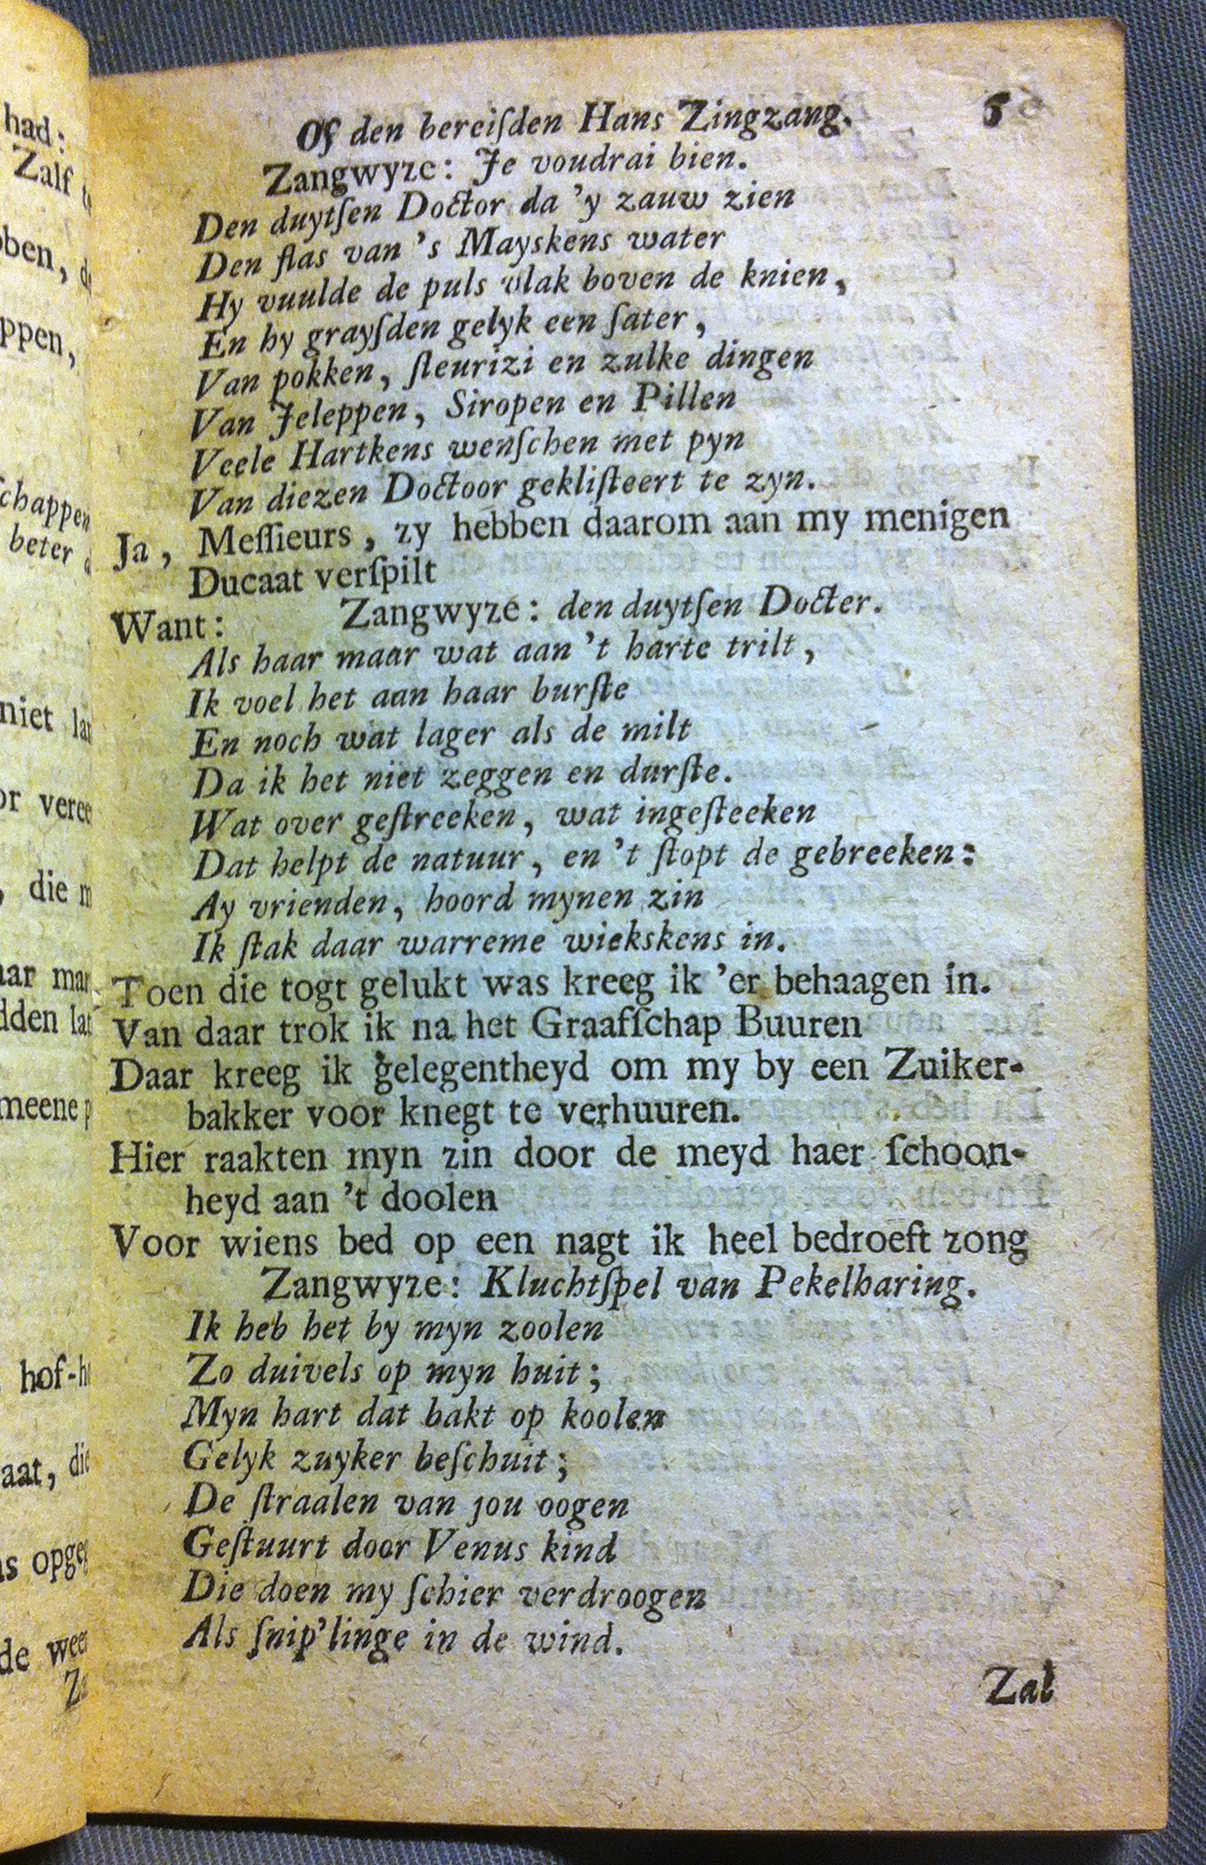 had:
Zalf
ppen,
beter
niet
die
hof-
de
Of den bereiſden Hans Zingzang. 5
Zangwyze: Je voudrai bien.
Den duytſen Doctor da 'y zauw zien
Den flas van 's Mayskens water
Hy vuulde de puls vlak boven de knien,
En hy grayſden gelyk een ſater,
Van pokken, fleurizi en zulke dingen
Van Jeleppen, Siropen en Pillen
Veele Hartkens wenſchen met pyn
Van diezen Doctoor gekliſteert te zyn.
Ja, Meſſieurs, zy hebben daarom aan my menigen
Ducaat verſpilt
Want: Zangwyze: den duytſen Docter.
Als haar maar wat aan 't harte trilt,
Ik voel het aan haar burſte
En noch wat lager als de milt
Da ik het niet zeggen en durſte.
Wat over geſtreeken, wat ingeſteeken
Dat helpt de natuur, en 't ſtopt de gebreeken:
Ay vrienden, hoord mynen zin
Ik ſtak daar warreme wiekskens in.
Toen die togt gelukt was kreeg ik 'er behaagen in.
Van daar trok ik na het Graafſchap Buuren
Daar kreeg ik gelegentheyd om my by een Zuiker-
bakker voor knegt te verhuuren.
Hier raakten myn zin door de meyd haer ſchoon-
heyd aan 't doolen
Voor wiens bed op een nagt ik heel bedroeft zong
Zangwyze: Kluchtſpel van Pekelharing.
Ik heb het by myn zoolen
Zo duivels op myn huit;
Myn hart dat bakt op koolen
Gelyk zuyker beſchuit;
De ſtraalen van jou oogen
Geſtuurt door Venus kind
Die doen my ſchier verdroogen
Als ſnip'linge in de wind.
Zal